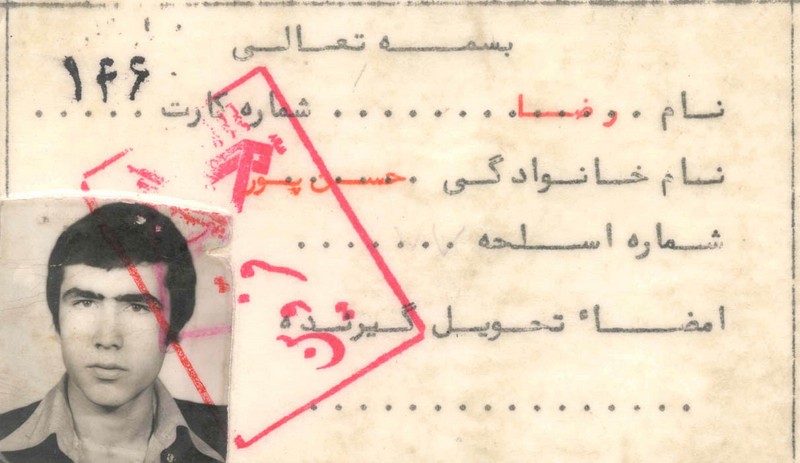 بسمه تعالی
نام رضا شماره کارت ۱۴۶
نام خانوادگی حسن پور
شماره اسلحه
امضاء تحویل گیرنده